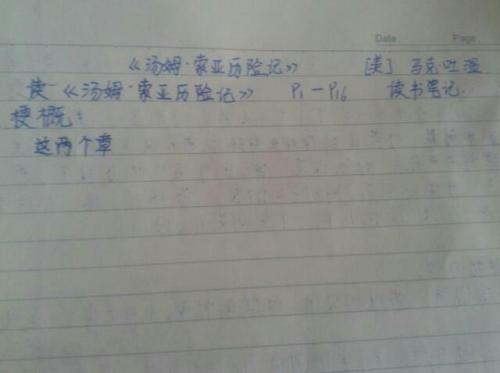 Date Page
《汤姆·索亚历险记》 [美] 马克·吐温
读《汤姆·索亚历险记》 P1－P16 读书笔记.
梗概：
这两个章